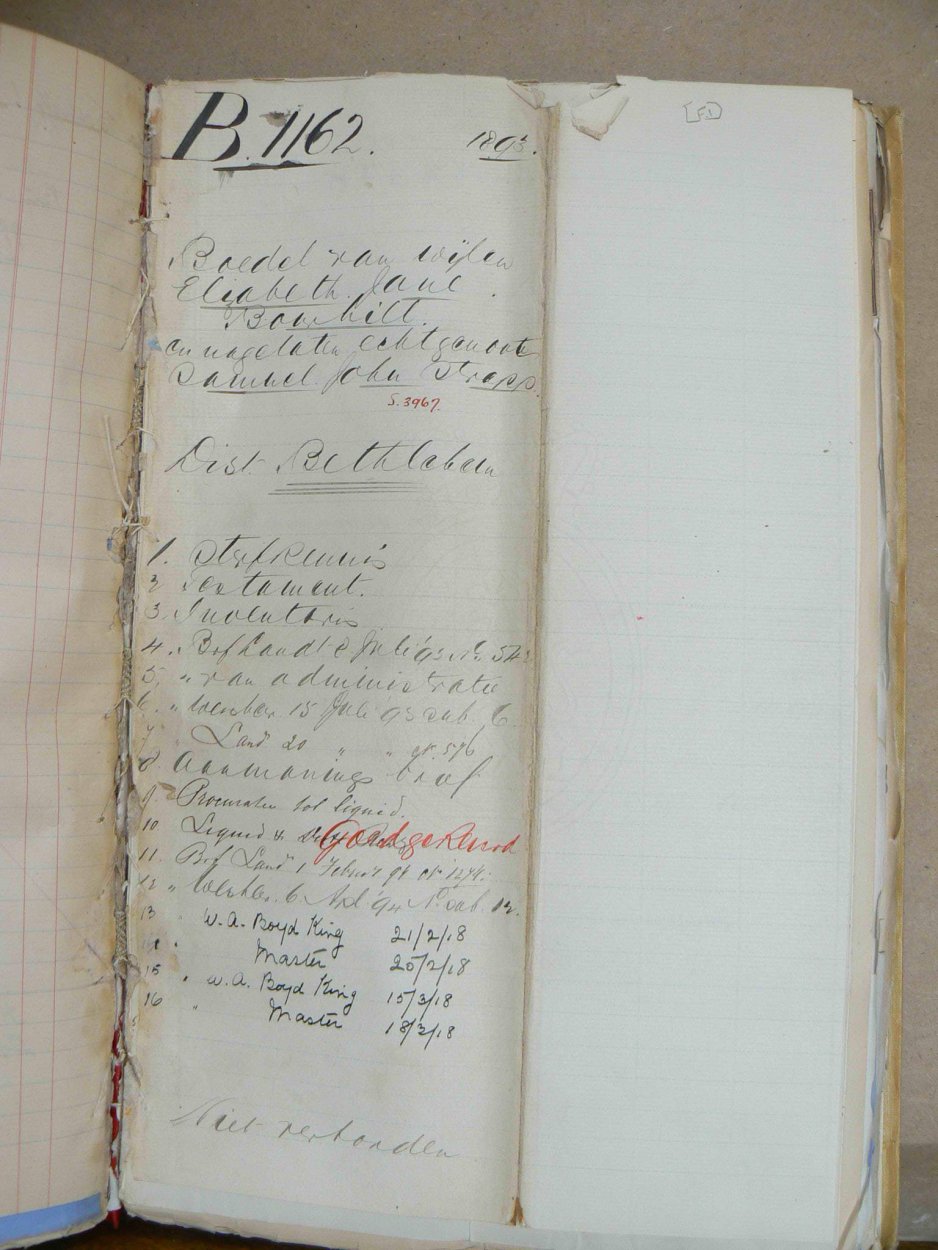 B. 1162. 1893.
[FD]
Boedel van wijlen
Elizabeth Jane
Bowhill.
en nagelaten echtgenoot
Samuel John Strapp.
S. 3967.
Dist Bethlehem
1. Sterfkennis
2 Testament.
3 Inventaris
4. Brf Landt Juli 93 No.
5. " van administratie
6. " Weesher 15 Juli 93 sub. 6
7 " Land 20 " " No. 576
8 Aanmanings brief
9. Procuratie tot liquid.
10 Liquid & Goedgekeurd
11. Brf Land 1 Febr 94 No 1274.
12 " Weesher. 6 Apl '94 No. sub. 12.
13 " W. A. Boyd King 21/2/18
" Master 25/2/18
15 " W. A. Boyd King 15/3/18
16 " Master 18/3/18
Niet verbonden